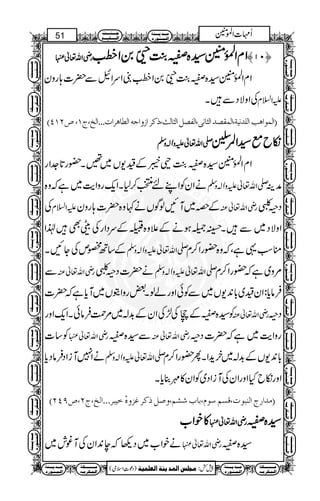 اُمہاتُ المؤمنین
51
﴿۱۰﴾ ام المؤمنین سیدہ صفیہ بنت حیی بن اخطب رضی اللہ تعالیٰ عنہا
ام المؤمنین سیدہ صفیہ بنت حیی بن اخطب بنی اسرائیل سے حضرت ہارون
علیہ السلام کی اولاد سے ہیں۔
(المواهب اللدنية،المقصد الثانی،الفصل الثالث،ذکر ازواجه الطاهرات...الخ،ج١،ص٤١٢)
نکاح مع سید المرسلین صلی اللہ تعالیٰ علیہ والہ وسلم
ام المؤمنین سیدہ صفیہ بنت حیی خیبر کے قیدیوں میں تھیں۔ حضور تاجدار
مدینہ صلی اللہ تعالیٰ علیہ والہ وسلم نے ان کو اپنے لئے منتخب کر لیا۔ ایک روایت میں ہے کہ وہ
دحیہ کلبی رضی اللہ تعالیٰ عنہ کے حصہ میں آئیں لوگوں نے کہا وہ حضرت ہارون علیہ السلام کی
اولاد میں سے ہیں۔ حسینہ جمیلہ ہونے کے علاوہ قبیلہ کے سردار کی بیٹی بھی ہیں لہٰذا
مناسب یہی ہے، کہ وہ حضور اکرم صلی اللہ تعالیٰ علیہ والہ وسلم کے ساتھ مخصوص کی جائیں۔
مروی ہے کہ حضور اکرم صلی اللہ تعالیٰ علیہ والہ وسلم نے حضرت دحیہ کلبی رضی اللہ تعالیٰ عنہ سے
فرمایا: ان قیدی باندیوں میں سے کوئی اور لے لو۔ بعض روایتوں میں آیا ہے کہ حضرت
دحیہ رضی اللہ تعالیٰ عنہ کو سیدہ صفیہ کے چچا کی لڑکی ان کے بدلہ میں مرحمت فرمائی۔ ایک اور
روایت میں ہے کہ حضرت دحیہ رضی اللہ تعالیٰ عنہ سے سیدہ صفیہ رضی اللہ تعالیٰ عنہا کو سات
باندیوں کے بدلہ میں خریدا۔ پھر حضور اکرم صلی اللہ تعالیٰ علیہ والہ وسلم نے انہیں آزاد فرما دیا
اور نکاح کیا اور ان کی آزادی کو ان کا مہر بنایا۔
(مدارج النبوت،قسم سوم،باب ششم،وصل ذکر غزوۂ خیبر...الخ،ج٢،ص٢٤٩)
سیدہ صفیہ رضی اللہ تعالیٰ عنہا کا خواب
سیدہ صفیہ رضی اللہ تعالیٰ عنہا نے خواب میں دیکھا کہ چاند ان کی آغوش میں
پیش کش: مجلس المدینۃ العلمیۃ (دعوتِ اسلامی)